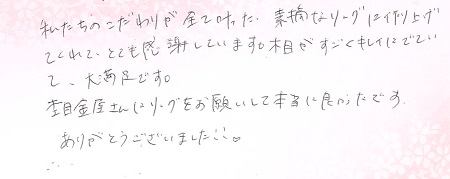 私たちのこだわりが全て叶った、素敵なリングに作り上げ
てくれて、とても感謝しています。木目がすごくキレイにでてい
て、大満足です。
杢目金屋さんにリングをお願いして本当に良かったです。
ありがとうございました!!。